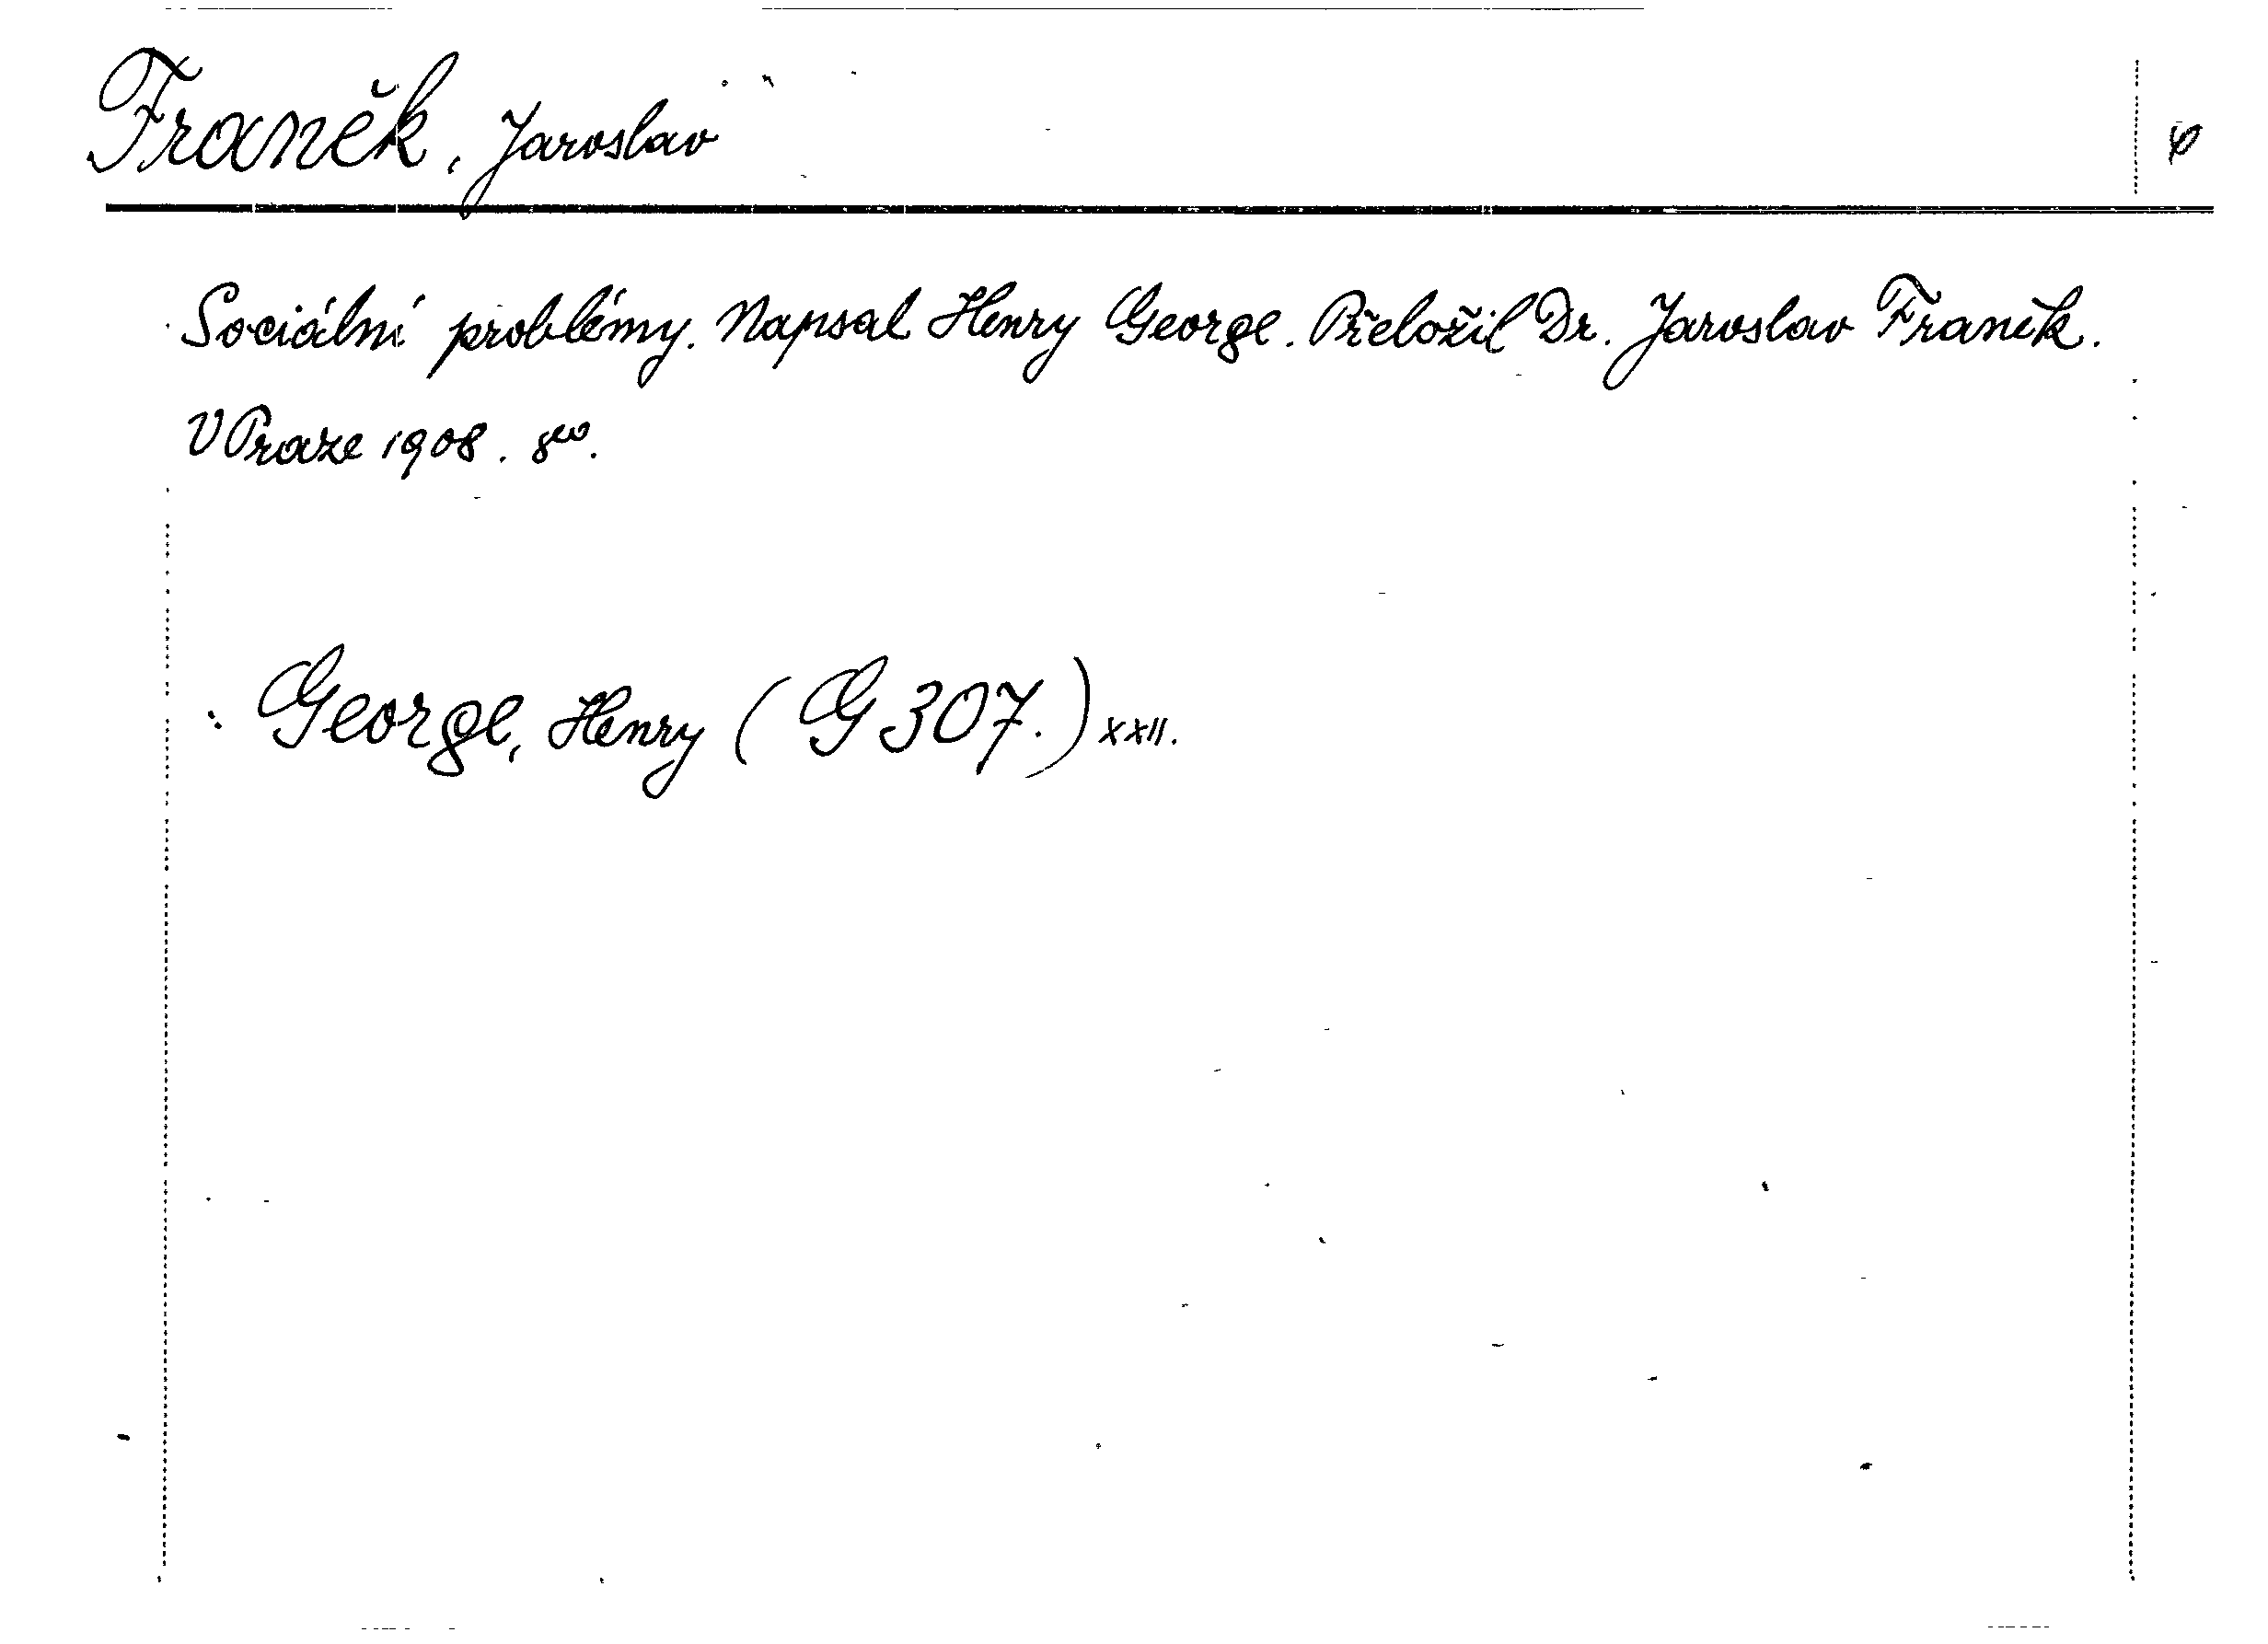 Franěk, Jaroslav
Sociální problémy. Napsal Henry George. Přeložil Dr. Jaroslav Franěk.
V Praze 1908. 8vo.
: George, Henry (G 307.) XXII.